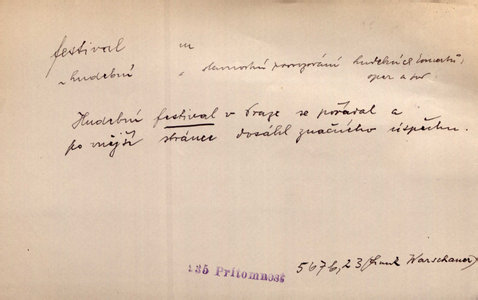 festival m
hudební slavnostní provozování hudebních koncertů,
oper a pod.
Hudební festival v Praze se pořádal a
po vnější stránce dosáhl značného úspěchu.
35 Přítomnost 567b, 23 (Frank Warschauer)